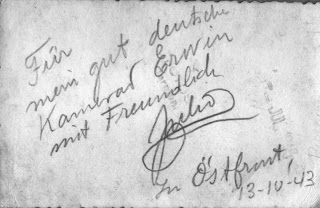 Für
mein gut deutsche
Kamerad Erwin
mit Freundlich
In Östfront,
13-10-43